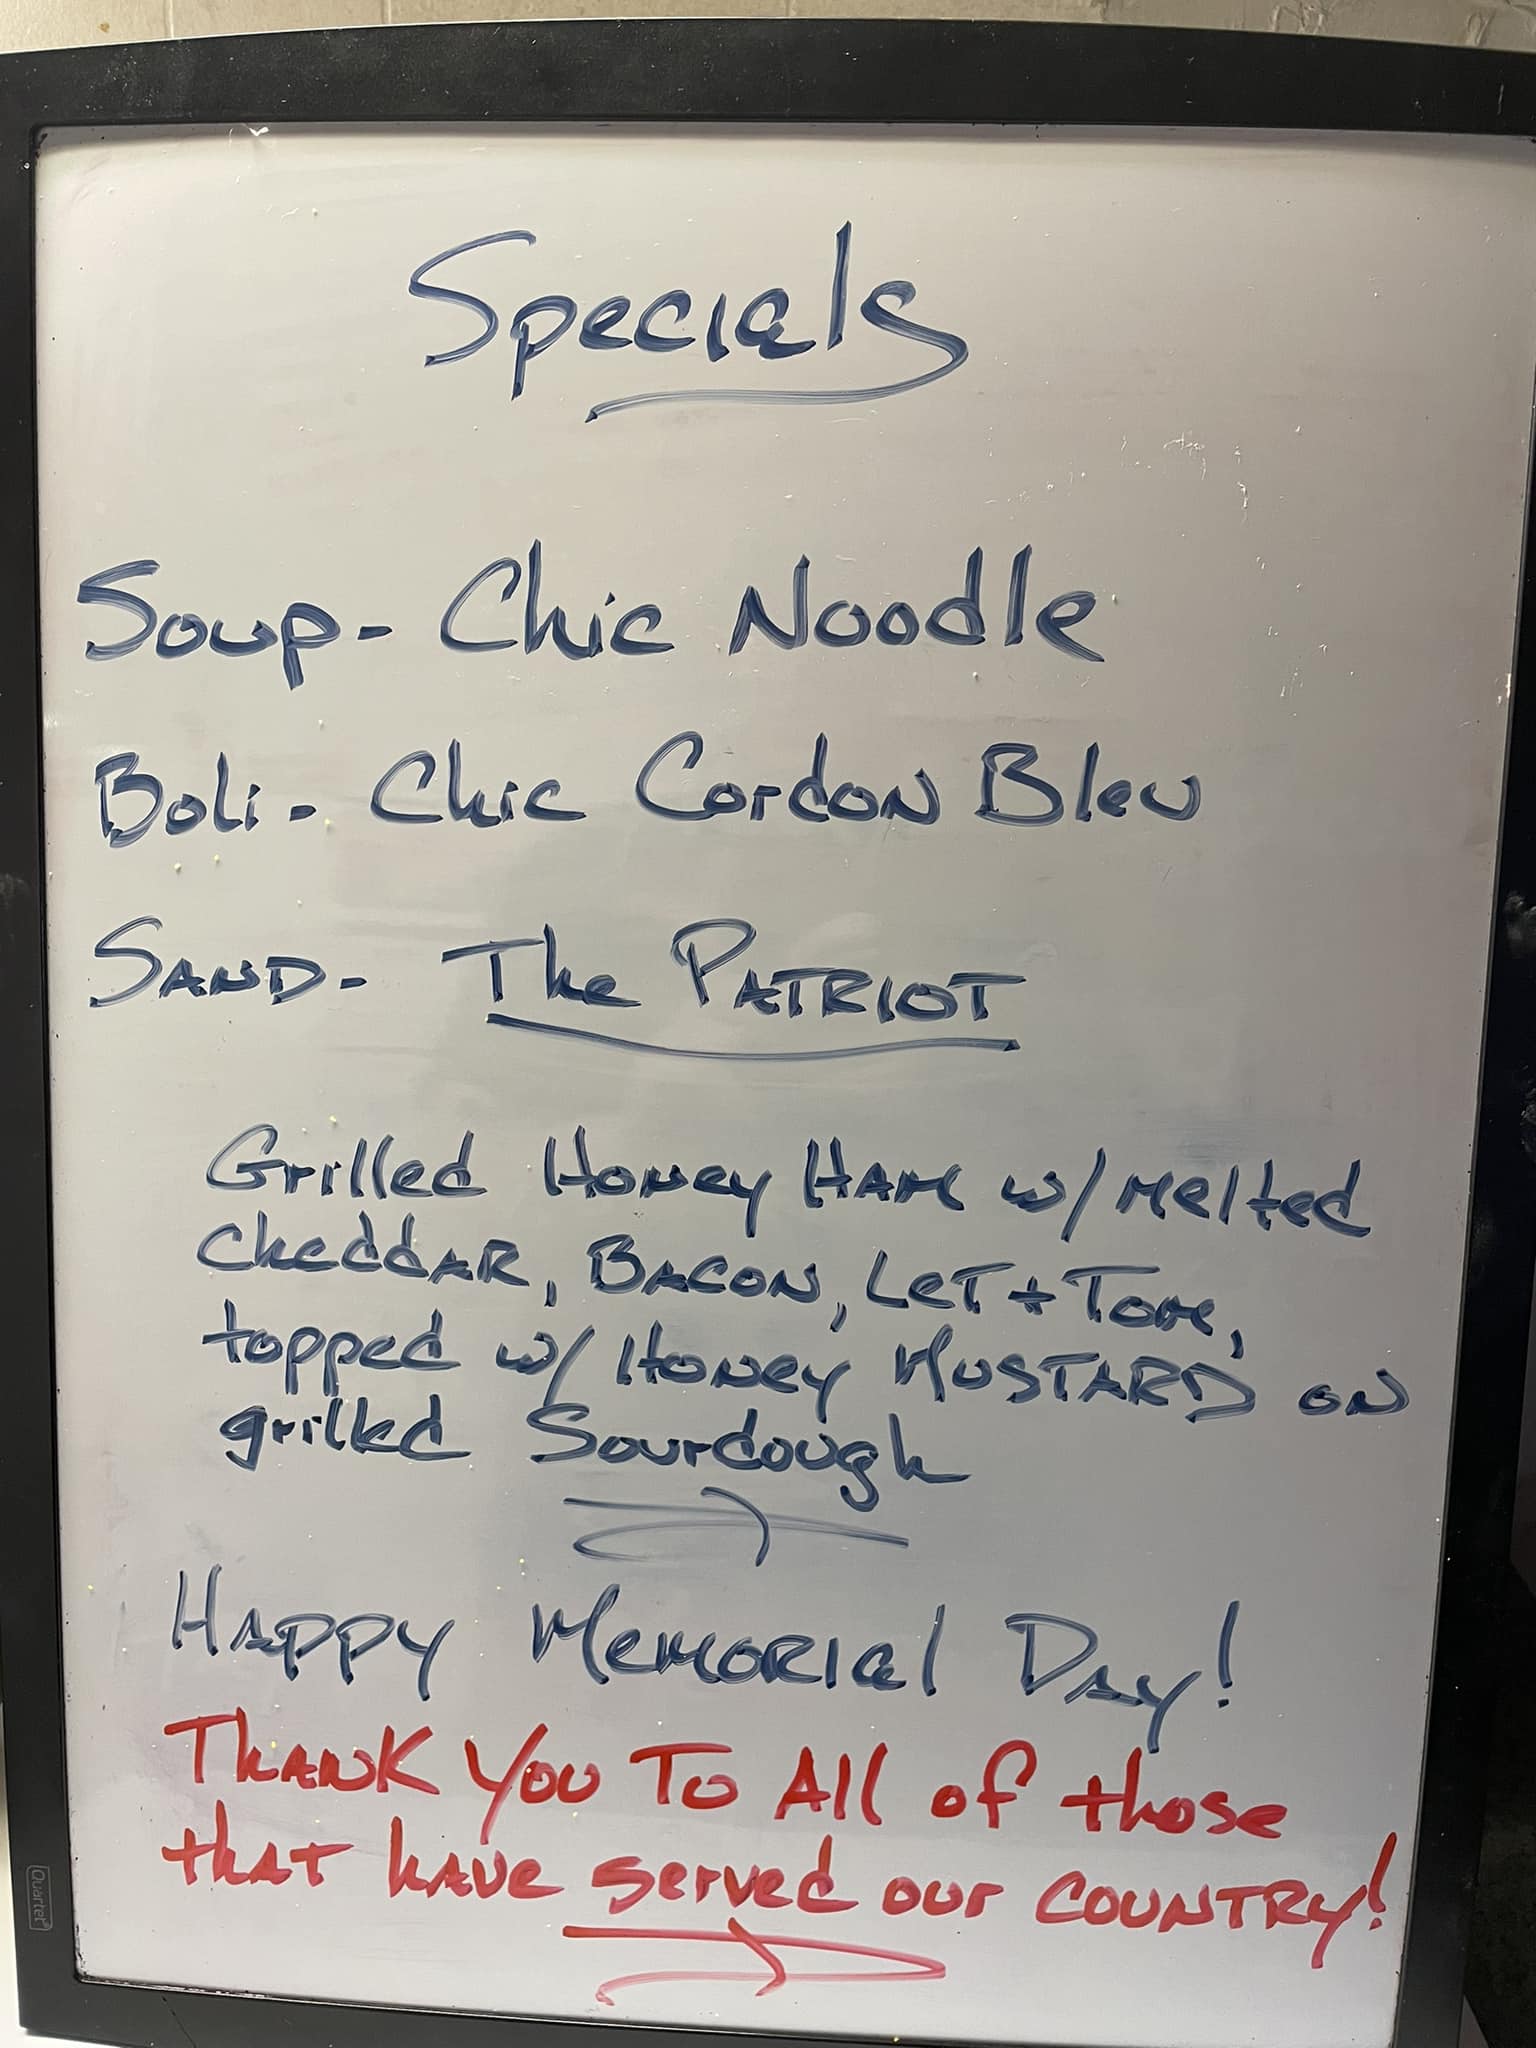 Specials
Soup - Chic Noodle
Boli - Chic Cordon Bleu
SAND - The PATRIOT
Grilled Honey HAM w/ Melted
CheddAR, BACON, LeT + Tom,
topped w/ Honey MUSTARD on
grilled Sourdough
HAPPY MeMORIal DAy!
THANK YOU TO All of those
thAT hAve served our COUNTRY!
Quartet